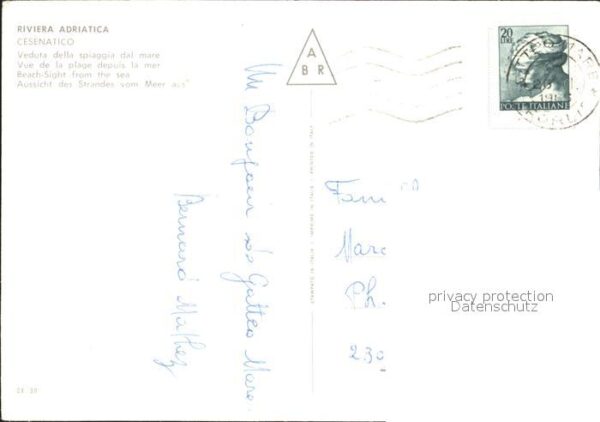 RIVIERA ADRIATICA
CESENATICO
Veduta della spiaggia dal mare
Vue de la plage depuis la mer
Beach-Sight from the sea
Aussicht des Strandes vom Meer aus
A
B R
20
LIRE
POSTE ITALIANE
MARE
Un Bonjour de Gatteo Mare.
Bernard Mathez
Fam
Marc
Ph.
230
privacy protection
Datenschutz